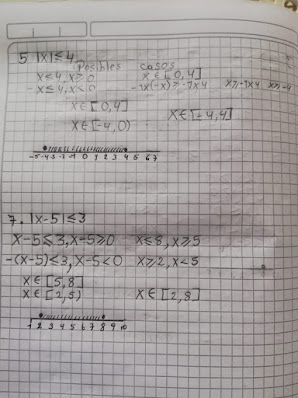 5 |x| ≤ 4
Posibles casos
x ≤ 4, x ≥ 0 x ∈ [0,4]
-x ≤ 4, x < 0 -1x(-x) ≥ -1x4 x ≥ -1x4 x ≥ -4
x ∈ [0,4]
x ∈ [-4,0) x ∈ [-4,4]
-5 -4 -3 -2 -1 0 1 2 3 4 5 6 7
7. |x-5| ≤ 3
x-5 ≤ 3, x-5 ≥ 0 x ≤ 8, x ≥ 5
-(x-5) ≤ 3, x-5 < 0 x ≥ 2, x < 5
x ∈ [5,8]
x ∈ [2,5) x ∈ [2,8]
1 2 3 4 5 6 7 8 9 10